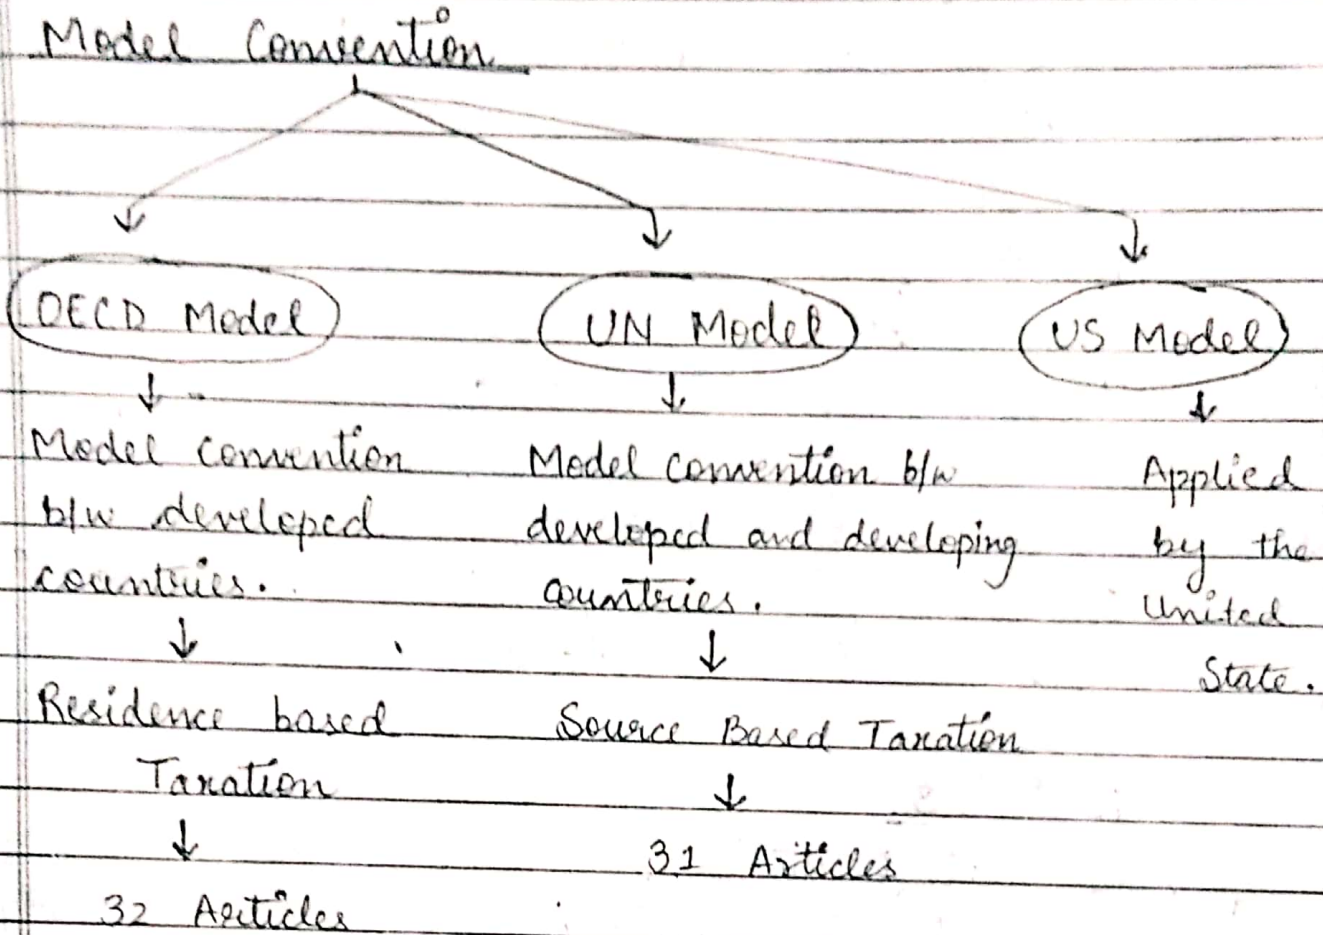 Model Convention
OECD Model
UN Model
US Model
Model Convention
b/w developed
countries.
Residence based
Taxation
32 Articles
Model Convention b/w
developed and developing
countries.
Source Based Taxation
31 Articles
Applied
by the
United
State.